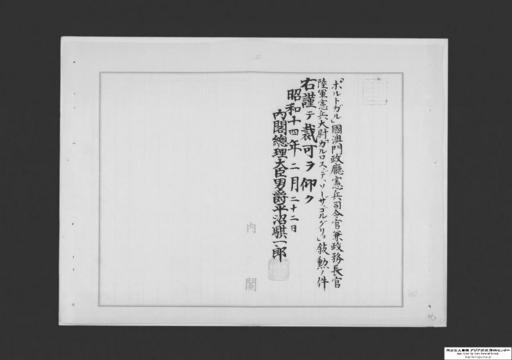 「ポルトガル」國澳門政廳憲兵司令官兼政務長官
陸軍憲兵大尉「カルロス、デ、ソーザ、ゴルグリョ」敍勲ノ件
右謹テ裁可ヲ仰ク
昭和十四年二月二十二日
内閣總理大臣男爵平沼騏一郎
内閣